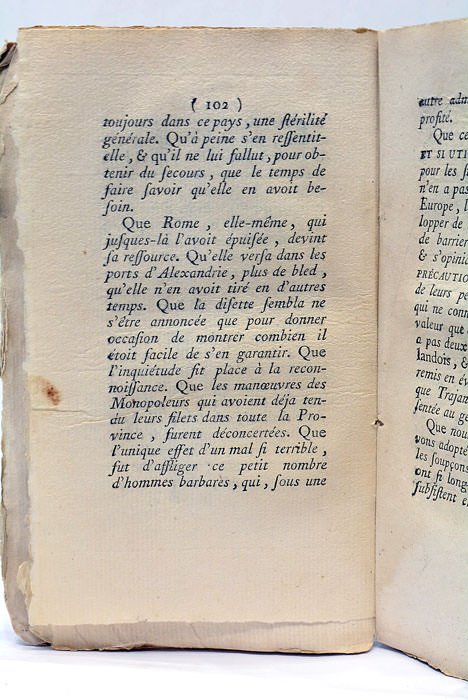 ( 102 )
toujours dans ce pays, une ſtérilité
générale. Qu'à peine s'en reſſentit-
elle, & qu'il ne lui fallut, pour ob-
tenir du ſecours, que le temps de
faire ſavoir qu'elle en avoit be-
ſoin.
Que Rome, elle-même, qui
juſques-là l'avoit épuiſée, devint
ſa reſſource. Qu'elle verſa dans les
ports d'Alexandrie, plus de bled,
qu'elle n'en avoit tiré en d'autres
temps. Que la diſette ſembla ne
s'être annoncée que pour donner
occaſion de montrer combien il
étoit facile de s'en garantir. Que
l'inquiétude fit place à la recon-
noiſſance. Que les manœuvres des
Monopoleurs qui avoient déja ten-
du leurs filets dans toute la Pro-
vince, furent déconcertées. Que
l'unique effet d'un mal ſi terrible,
fut d'affliger ce petit nombre
d'hommes barbares, qui, ſous une
autre adm
profité.
Que ce
ET SI UTI
pour les
n'en a pas
Europe, l
lopper de
de barrier
& s'opini
PRÉCAUTIO
de leurs pe
qui ne conn
valeur que
a pas deux
landois, &
remis en é
que Trajan
ſentée au ge
Que nou
vons adopté
les ſoupçons
ont ſi long
ſubſiſtent e